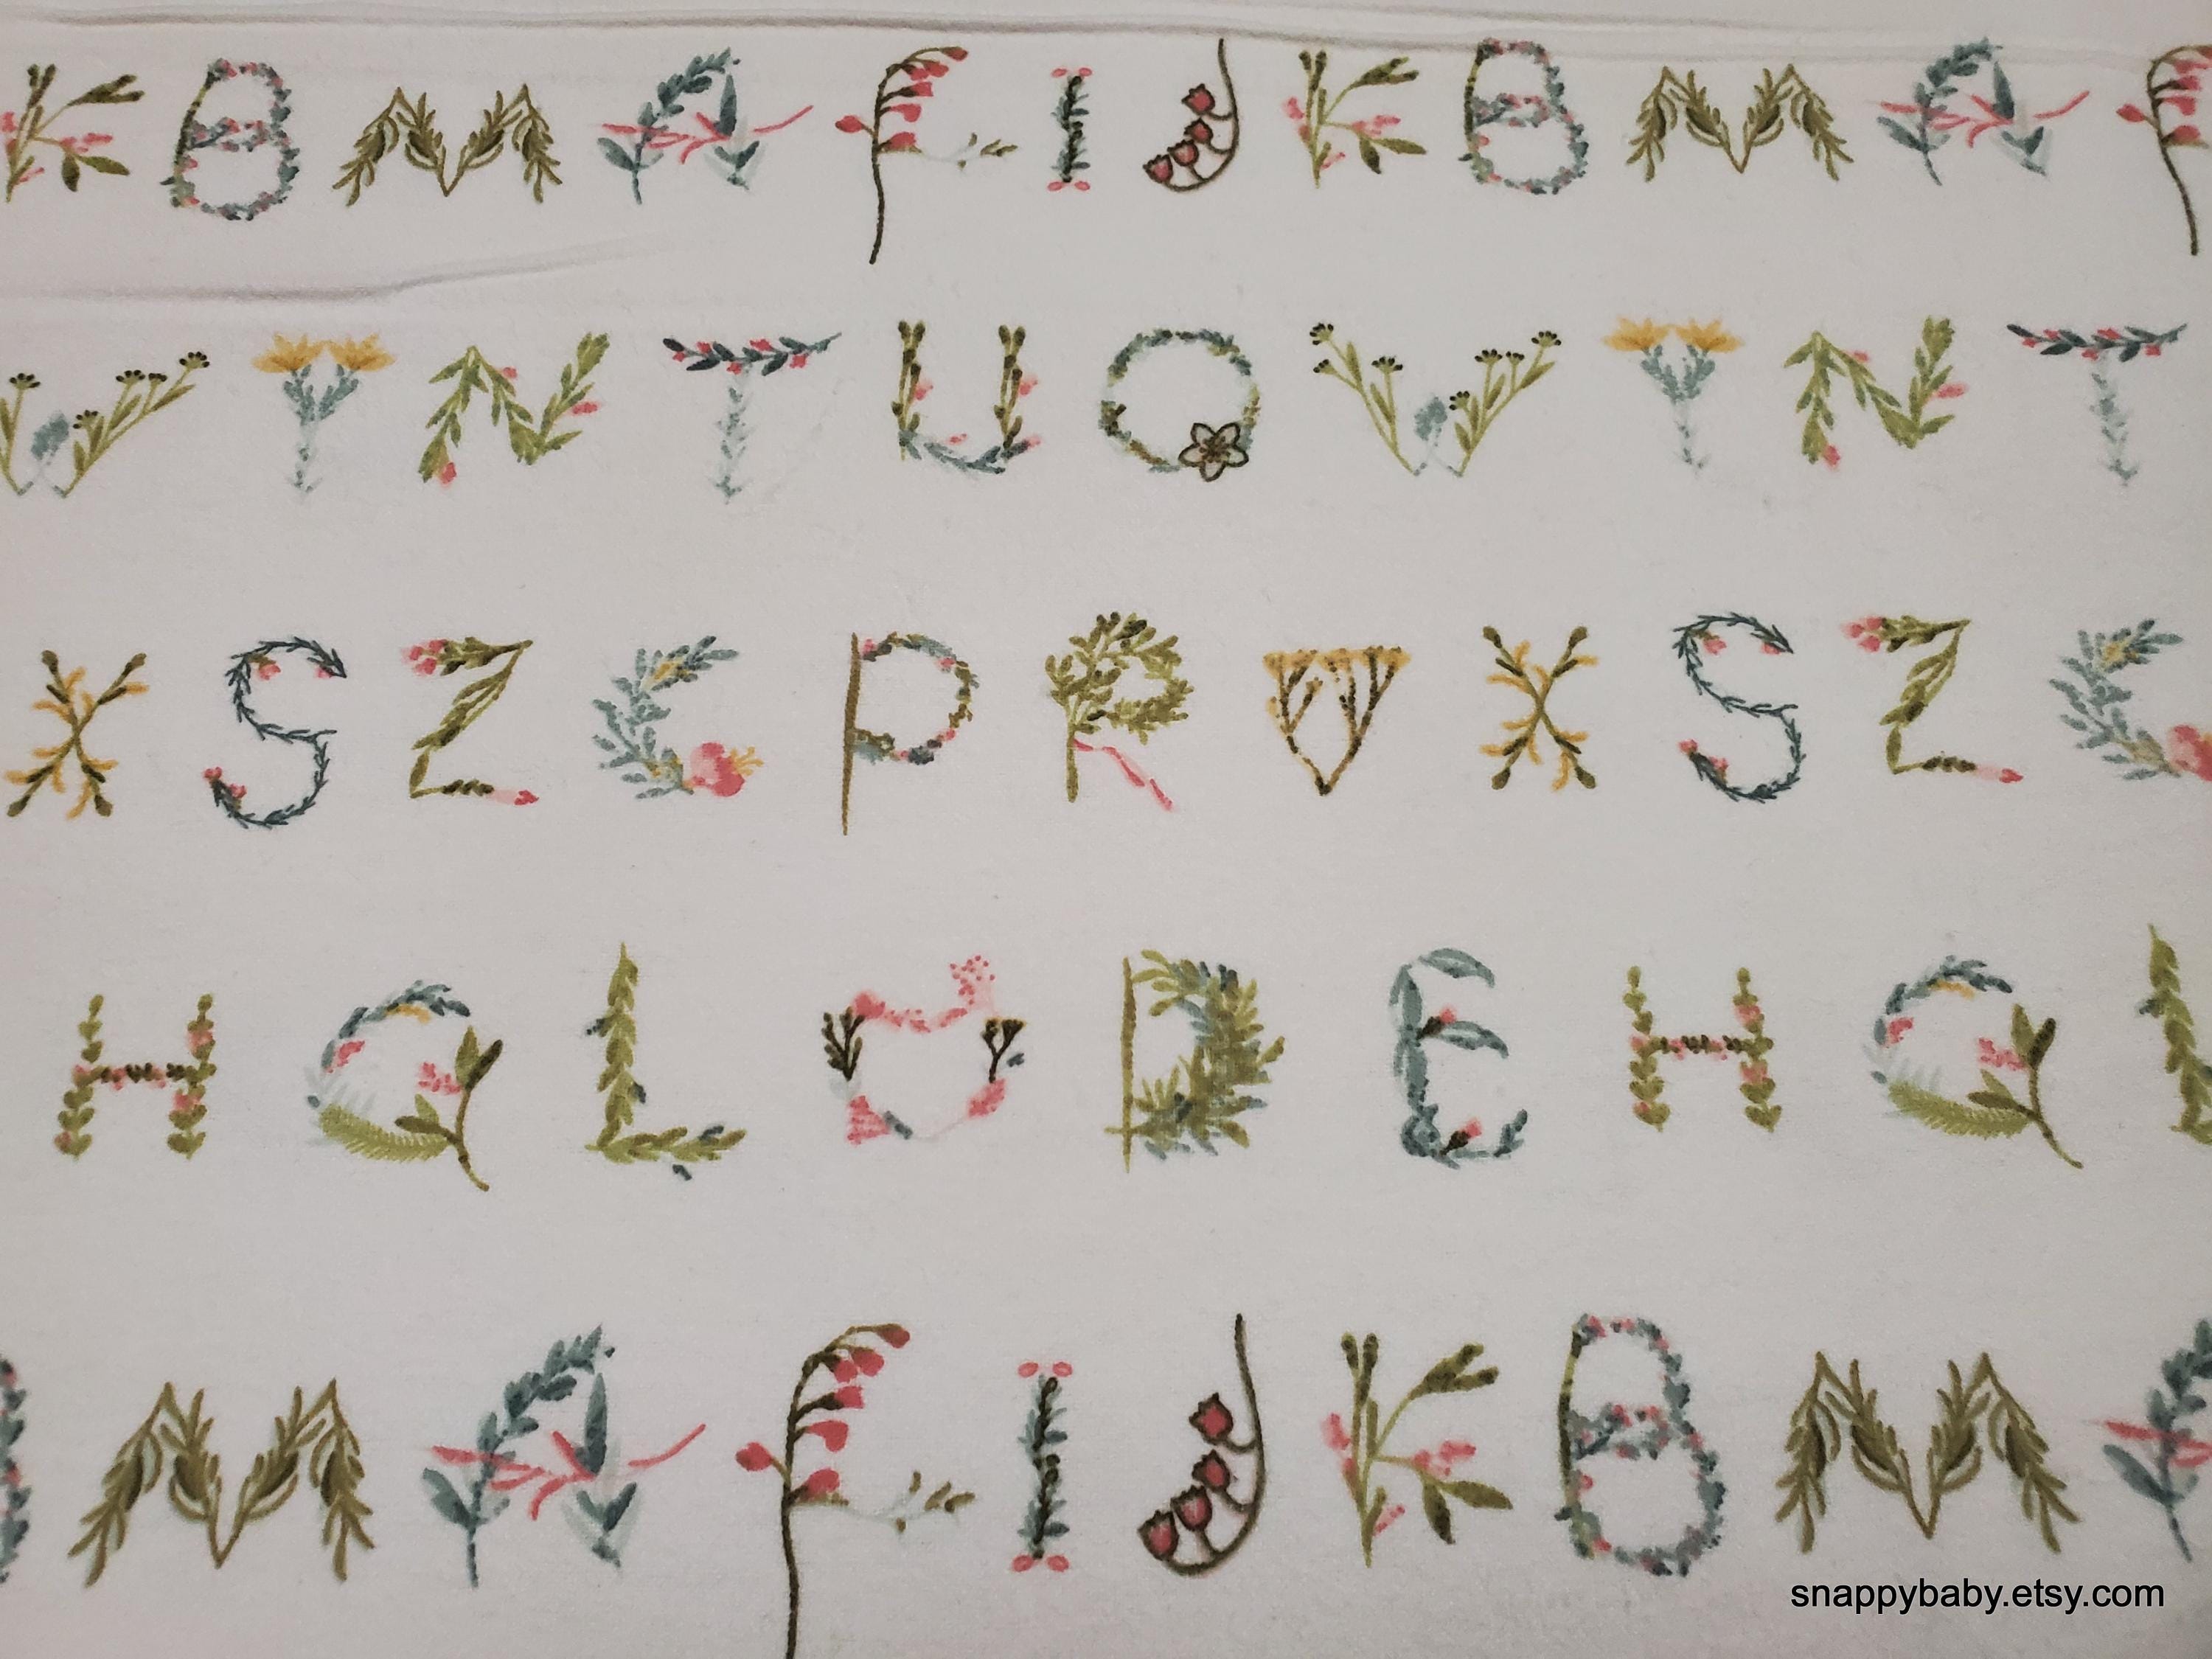 K B M A F I J K B M A F
W Y N T U O W Y N T
X S Z C P R V X S Z C
H Q L G D E H Q L
B M A F I J K B M A
snappybaby.etsy.com